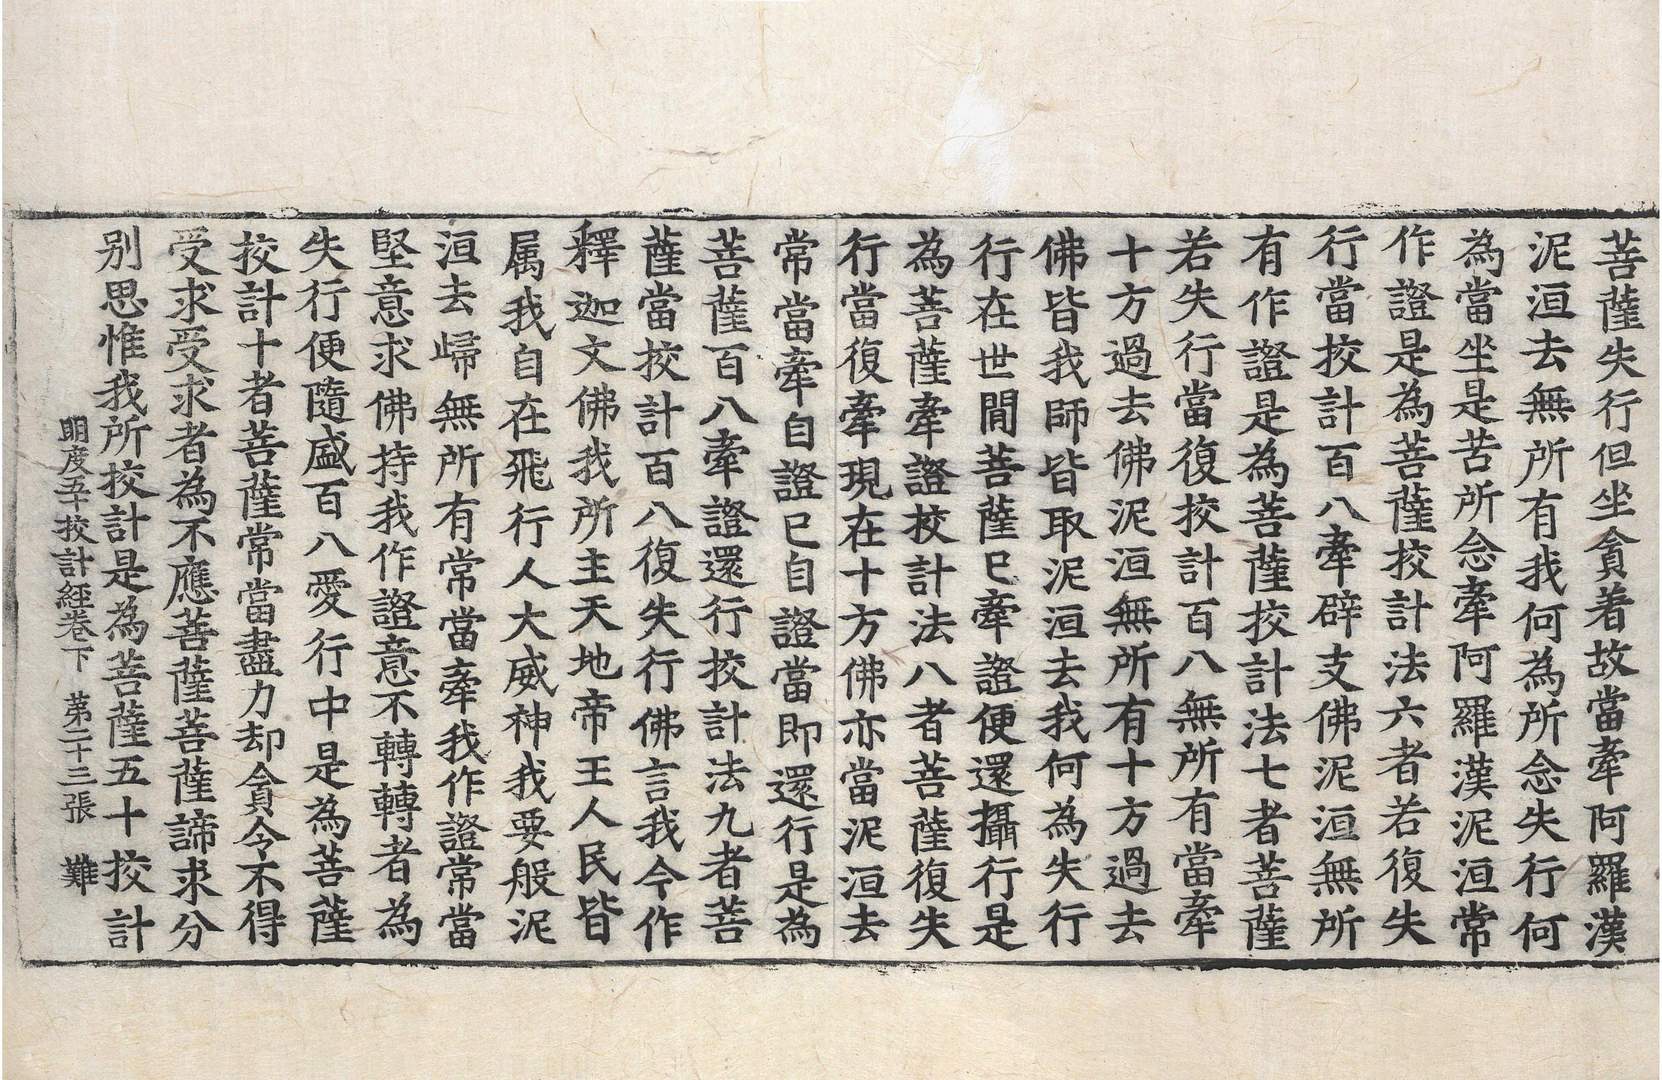 菩薩失行但坐貪着故當牽阿羅漢
泥洹去無所有我何為所念失行何
為當坐是苦所念牽阿羅漢泥洹常
作證是為菩薩挍計法六者若復失
行當挍計百八牽辟支佛泥洹無所
有作證是為菩薩挍計法七者菩薩
若失行當復挍計百八無所有當牽
十方過去佛泥洹無所有十方過去
佛皆我師皆取泥洹去我何為失行
行在世閒菩薩已牽證便還攝行是
為菩薩牽證挍計法八者菩薩復失
行當復牽現在十方佛亦當泥洹去
常當牽自證已自證當即還行是為
菩薩百八牽證還行挍計法九者菩
薩當挍計百八復失行佛言我今作
釋迦文佛我所主天地帝王人民皆
属我自在飛行人大威神我要般泥
洹去歸無所有常當牽我作證常當
堅意求佛持我作證意不轉轉者為
失行便隨盛百八愛行中是為菩薩
挍計十者菩薩常當盡力却貪令不得
受求受求者為不應菩薩菩薩諦求分
別思惟我所挍計是為菩薩五十挍計
明度五十挍計經卷下　第二十三張　難